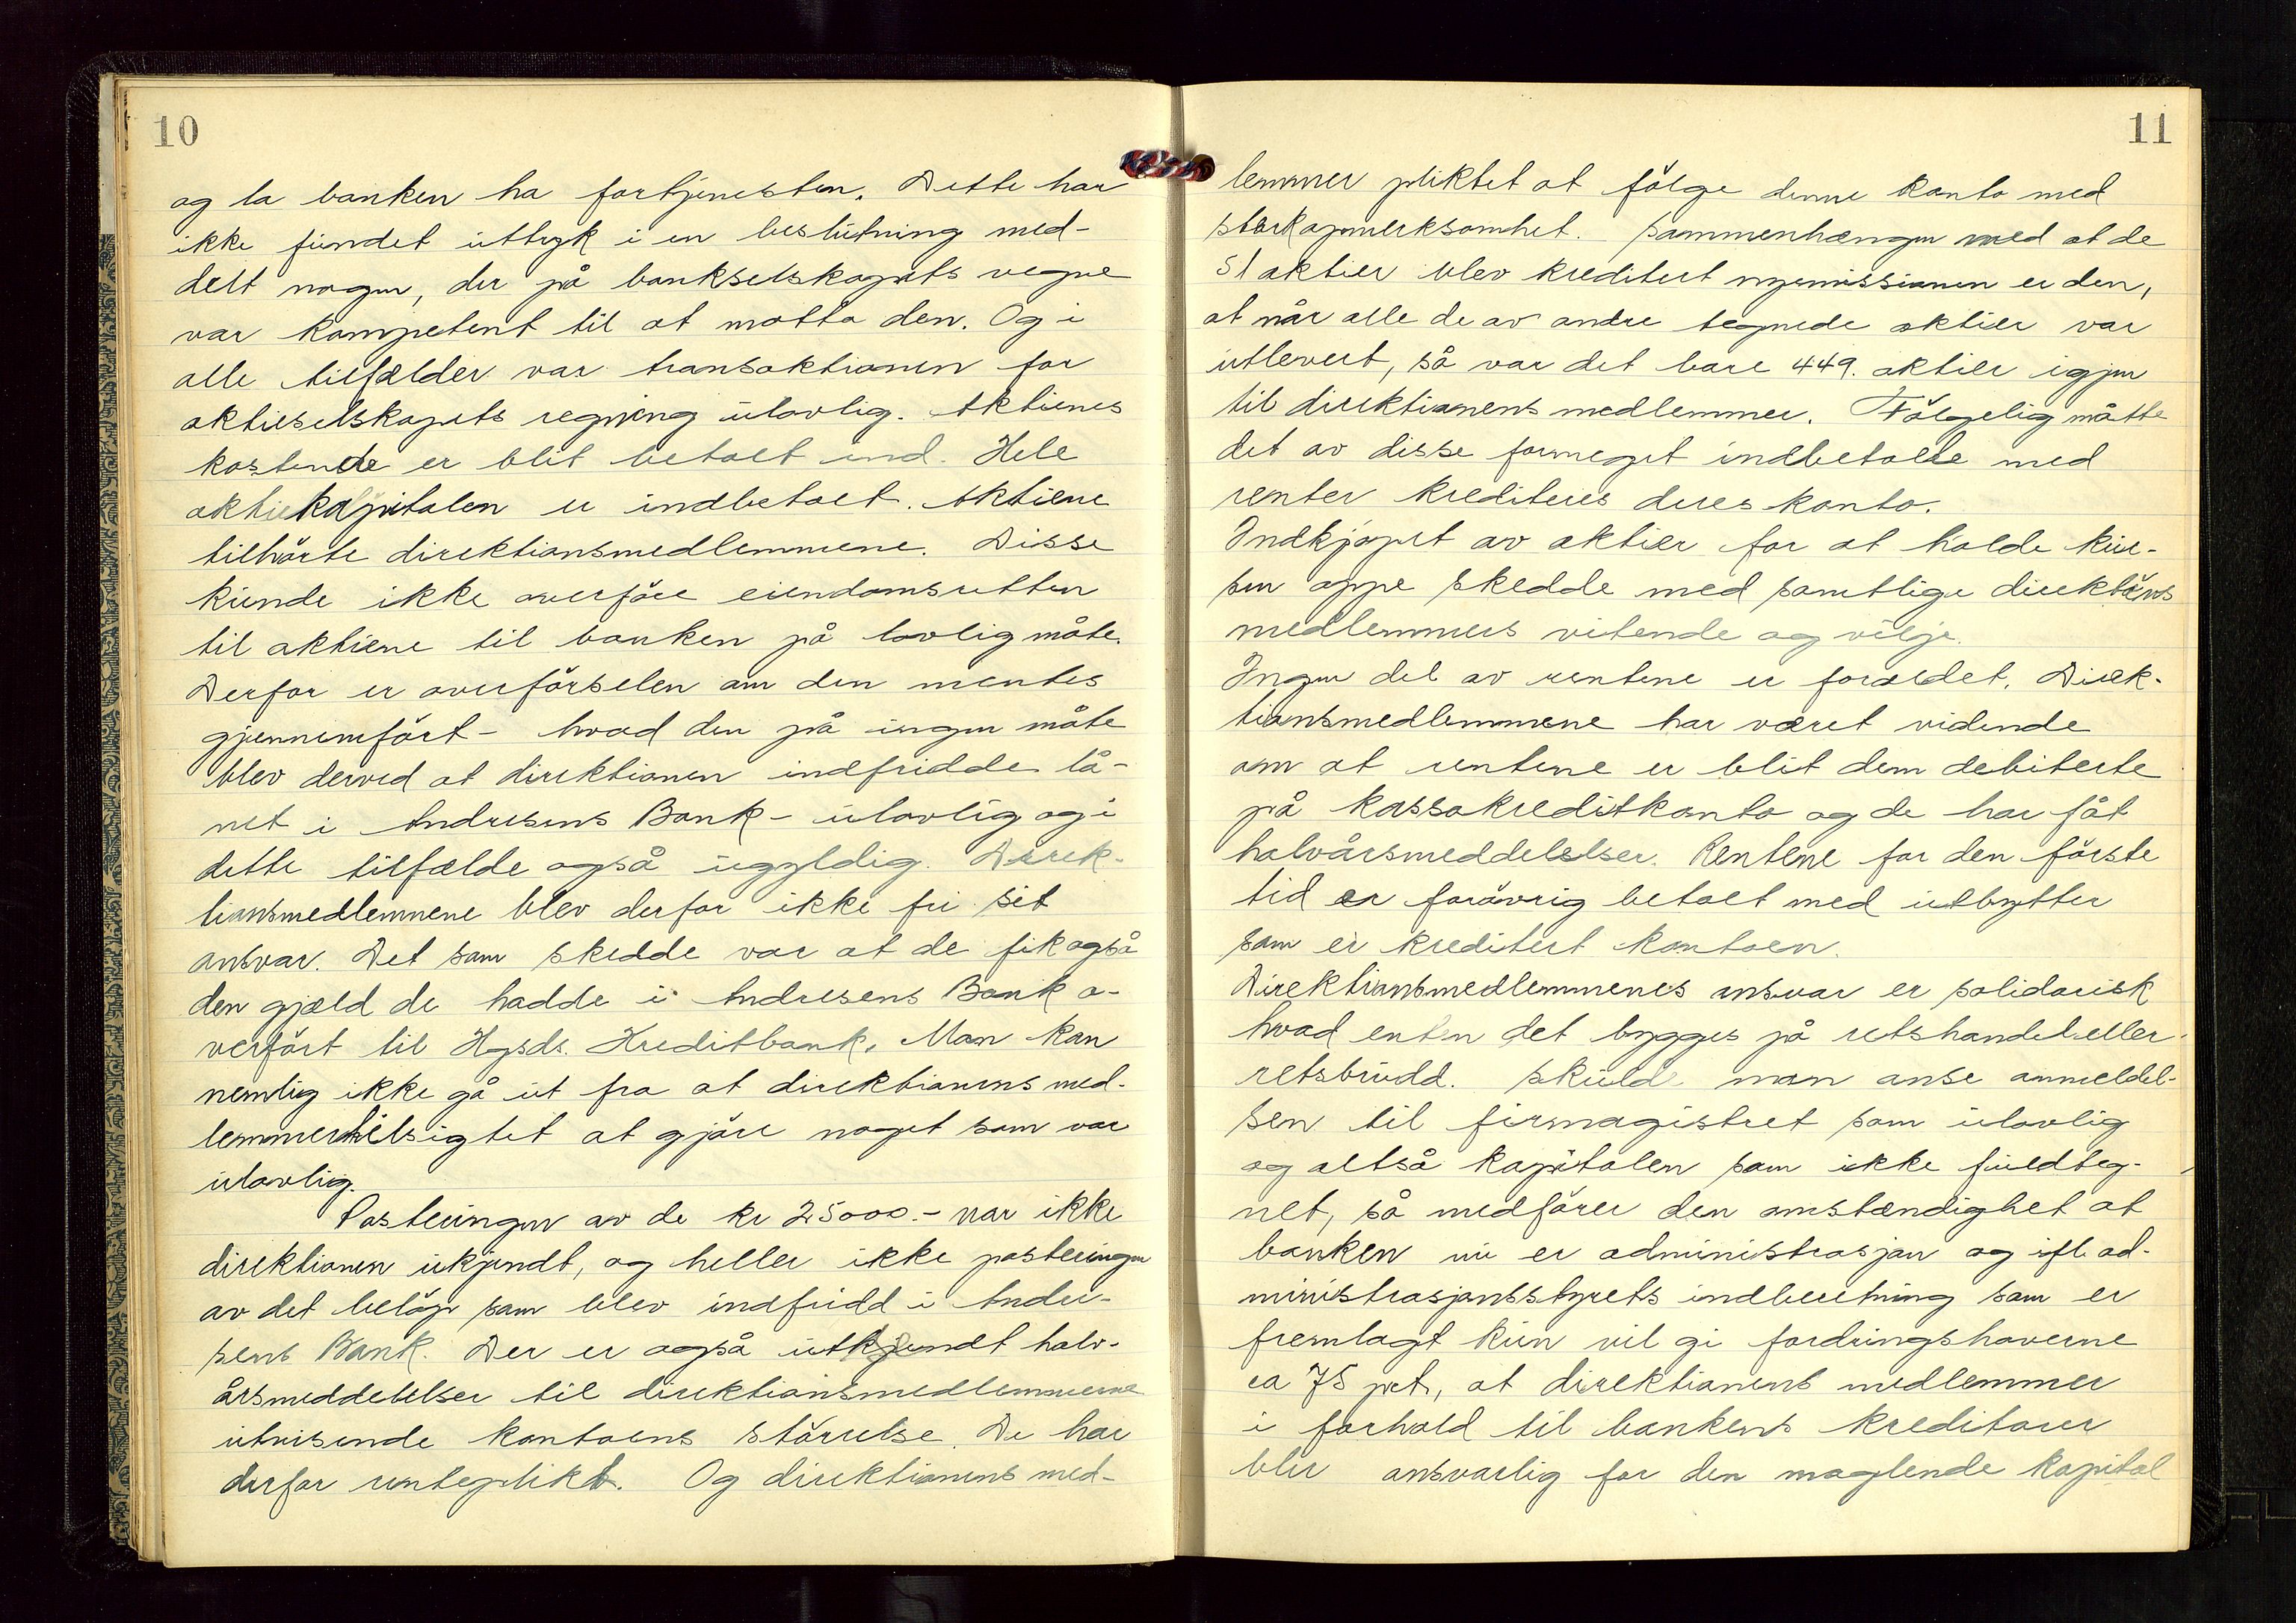 10
og la banken ha fortjenesten. Dette har
ikke fundet uttryk i en beslutning med-
delt nogen, der på bankselskapets vegne
var kompetent til at motta den. Og i
alle tilfælder var transaktionen for
aktieselskapets regning ulovlig. Aktienes
kostende er blit betalt ind. Hele
aktiekapitalen er indbetalt. Aktiene
tilhörte direktionsmedlemmene. Disse
kunde ikke overföre eiendomsretten
til aktiene til banken på lovlig måte.
Derfor er overförselen om den mentes
gjennemfört - hvad den på ingen måte
blev derved at direktionen indfridde lå-
net i Andresens Bank - ulovlig og i
dette tilfælde også ugyldig. Direk-
tionsmedlemnene blev derfor ikke fri sit
ansvar. Det som skedde var at de fik også
den gjæld de hadde i Andresens Bank o-
verfört til Hgsds. Kreditbank. Man kan
nemlig ikke gå ut fra at direktionens med-
lemmer tilsigtet at gjöre noget som var
ulovlig.
Posteringen av de kr 25000.- var ikke
direktionen ukjendt, og heller ikke posteringen
av det belöp som blev indfridd i Andre-
sens Bank. Der er også utkjendt halv-
årsmeddelelser til direktionsmedlemmerne
utvisende kontoens störrelse. De har
derfor renteplikt. Og direktionens med-
11
lemmer pliktet at fölge denne konto med
sterk opmerksomhet. Sammenhængen med at de
51 aktier blev kreditert nyemissionen er den,
at når alle de av andre tegnede aktier var
utlevert, så var det bare 449. aktier igjen
til direktionens medlemmer. Fölgelig måtte
det av disse formeget indbetalte med
renter krediteres deres konto.
Indkjöpet av aktier for at holde kur-
sen oppe skedde med samtlige direktions
medlemmers vitende og vilje.
Ingen del av rentene er foreldet. Direk-
tionsmedlemmene har været vidende
om at rentene er blit dem debiterte
på kassakreditkonto og de har fåt
halvårsmeddelelser. Rentene for den förste
tid er forövrig betalt med utbytter
som er kreditert kontoen.
Direktionsmedlemmenes ansvar er solidarisk
hvad enten det bygges på retshandel eller
retsbrudd. Skulde man anse anmeldel-
sen til firmagistret som ulovlig
og altså kapitalen som ikke fuldteg-
net, så medförer den omstændighet at
banken nu er administrasjon og ifl. ad-
ministrasjonsstyrets indberetning som er
fremlagt kun vil gi fordringshaverne
ca 75 pct, at direktionens medlemmer
i forhold til bankens kreditorer
blir ansvarlig for den maglende kapital